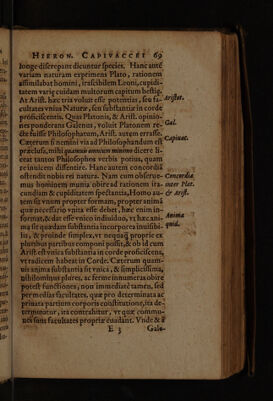 HIERON. CAPIVACCEI 69
longe discrepant dicuntur species. Hanc autē
variam naturam exprimens Plato, rationem
assimilabat homini, irascibilem Leoni, cupidi-
tatem varię cuidam multorum capitum bestię.
At Arist. hæc tria voluit esse potentias, seu fa-
Aristot.
cultates vnius Naturæ, seu substantiæ in corde
proficiscentis. Quas Platonis, & Arist. opinio-
nes ponderans Galenus, voluit Platonem re-
Gal.
cte fuisse Philosophatum, Arist. autem errasse.
Cæterum si nemini via ad Philosophandum est
Capiuac.
præclusa, mihi quamuis omnium minimo dicere li-
ceat tantos Philosophos verbis potius, quam
re inuicem dissentire. Hanc autem concordiā
ostendit nobis rei natura. Nam cum obserue-
Concordia
mus hominem munia obire ad rationem ira-
inter Plat.
cundiam & cupiditatem spectantia, Homo au-
& Arist.
tem sit vnum propter formam, propter animā
quæ necessario vnita esse debet, hæc enim in-
format, & dat esse vnico indiuiduo, vt hæc ani-
Anima
ma sit quædam substantia incorporea inuisibi-
quid.
lis, & proinde simplex, vt nequaq̃ proprie ex
pluribus partibus componi possit, & ob id cum
Arist. est vnica substantia in corde proficiscens,
vt radicem habeat in Corde. Cæterum quam-
uis anima substantia sit vnica, & simplicissima,
nihilominus plures, ac ferme innumeras obire
potest functiones, non immediatè tamen, sed
per medias facultates, quæ pro determinata ac
priuata partium corporis constitutione, ita de-
terminatur, ita contrahitur, vt quæ commu-
nes sunt facultates propriæ euadant. Vnde &
E 3
Gale-